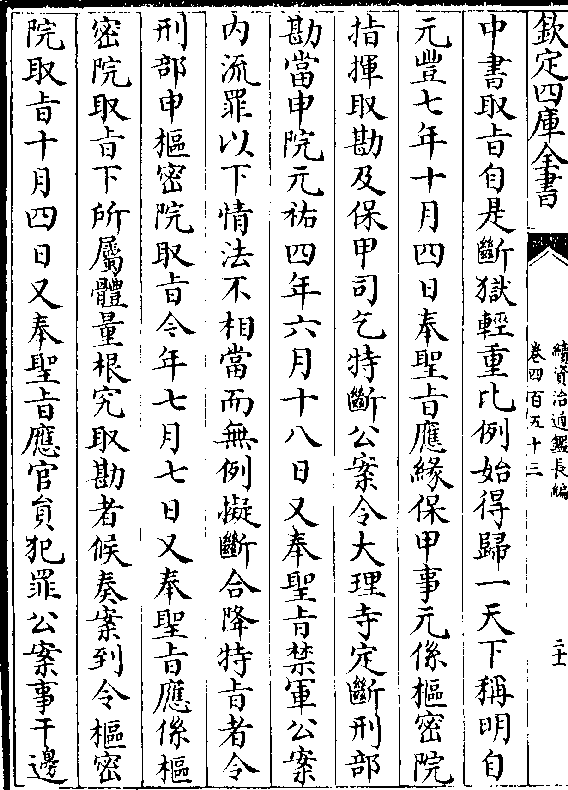 欽定四庫全書
續資治通鑑長編
卷四百五十三
二十
中書取旨自是斷獄輕重比例始得歸一天下稱明自
元豐七年十月四日奉聖旨應緣保甲事元係樞密院
指揮取勘及保甲司乞特斷公案令大理寺定斷刑部
勘當申院元祐四年六月十八日又奉聖旨禁軍公案
内流罪以下情法不相當而無例擬斷合降特旨者令
刑部申樞密院取旨今年七月七日又奉聖旨應係樞
密院取旨下所屬體量根究取勘者候奏案到令樞密
院取旨十月四日又奉聖旨應官員犯罪公案事干邊